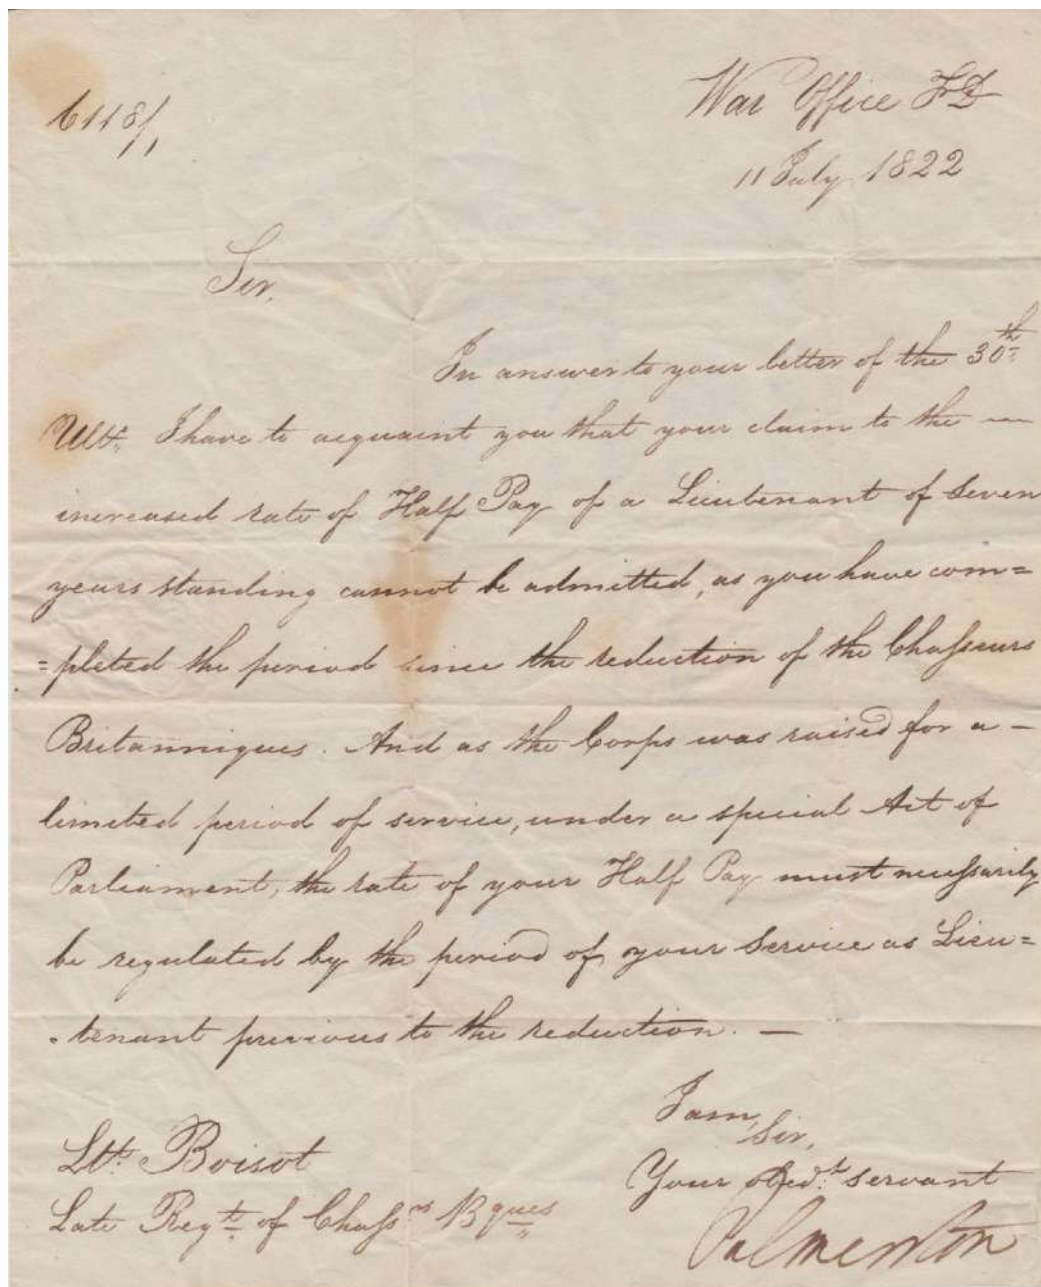 6118/1
War Office F.D
11 July 1822
Sir,
In answer to your letter of the 30th
Ulto. I have to acquaint you that your claim to the —
increased rate of Half Pay of a Lieutenant of Seven
years standing cannot be admitted, as you have com=
=pleted the period since the reduction of the Chaſseurs
Britanniques. And as the Corps was raised for a —
limited period of service, under a special Act of
Parliament, the rate of your Half Pay must neceſsarily
be regulated by the period of your Service as Lieu=
-tenant previous to the reduction. —
I am,
Sir,
Your obedt. servant
Palmerston
Ltt. Boisot
Late Regt. of Chaſsrs Bques